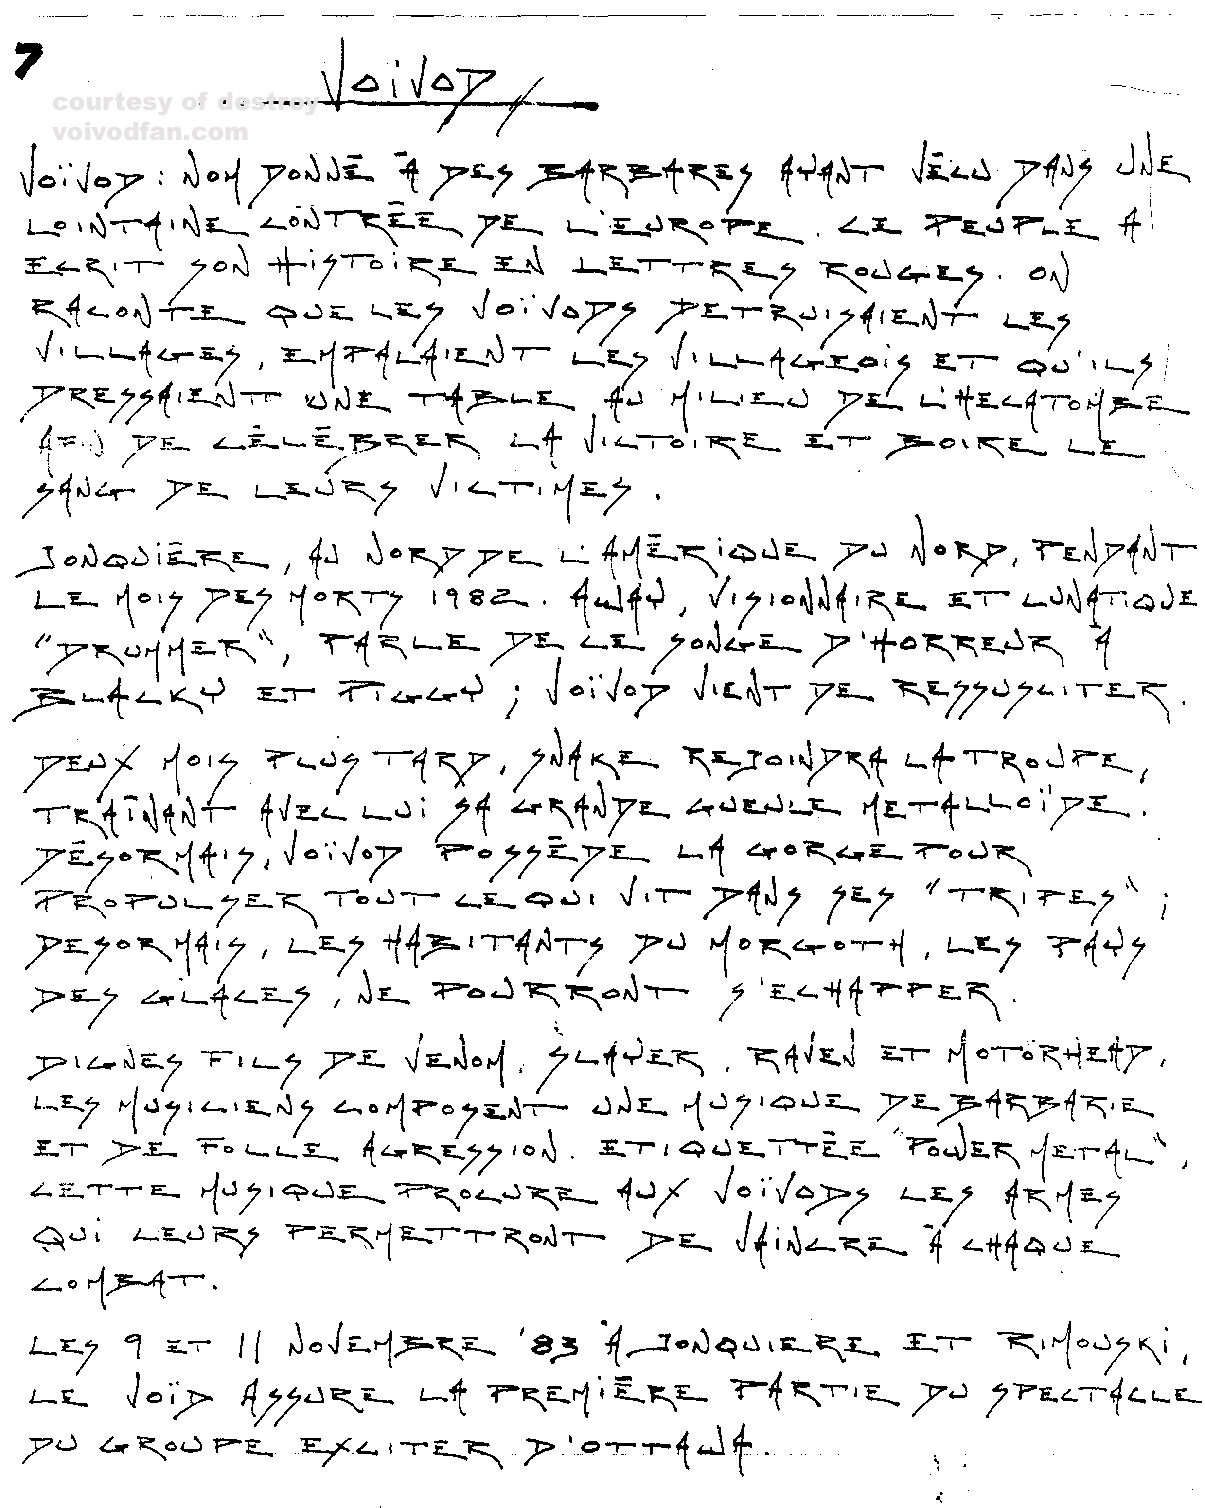 7
VOIVOD
courtesy of destroy
voivodfan.com
VOÏVOD : NOM DONNÉ À DES BARBARES AYANT VÉCU DANS UNE
LOINTAINE CONTRÉE DE L'EUROPE. CE PEUPLE A
ECRIT SON HISTOIRE EN LETTRES ROUGES. ON
RACONTE QUE LES VOÏVODS DETRUISAIENT LES
VILLAGES, EMPALAIENT LES VILLAGEOIS ET QU'ILS
DRESSAIENT UNE TABLE AU MILIEU DE L'HECATOMBE
AFIN DE CÉLÉBRER LA VICTOIRE ET BOIRE LE
SANG DE LEURS VICTIMES.
JONQUIÈRE, AU NORD DE L'AMÉRIQUE DU NORD, PENDANT
LE MOIS DES MORTS 1982. AWAY, VISIONNAIRE ET LUNATIQUE
"DRUMMER", PARLE DE CE SONGE D'HORREUR À
BLACKY ET PIGGY ; VOÏVOD VIENT DE RESSUSCITER.
DEUX MOIS PLUS TARD, SNAKE REJOINDRA LA TROUPE,
TRAÎNANT AVEC LUI SA GRANDE GUEULE METALLOÏDE.
DÉSORMAIS, VOÏVOD POSSÈDE LA GORGE POUR
PROPULSER TOUT CE QUI VIT DANS SES "TRIPES" ;
DESORMAIS, LES HABITANTS DU MORGOTH, LES PAYS
DES GLACES, NE POURRONT S'ECHAPPER.
DIGNES FILS DE VENOM, SLAYER, RAVEN ET MOTÖRHEAD,
LES MUSICIENS COMPOSENT UNE MUSIQUE DE BARBARIE
ET DE FOLLE AGRESSION. ETIQUETTÉE "POWER METAL",
CETTE MUSIQUE PROCURE AUX VOÏVODS LES ARMES
QUI LEURS PERMETTRONT DE VAINCRE À CHAQUE
COMBAT.
LES 9 ET 11 NOVEMBRE '83 À JONQUIERE ET RIMOUSKI,
LE VOÏD ASSURE LA PREMIÈRE PARTIE DU SPECTACLE
DU GROUPE EXCITER D'OTTAWA.